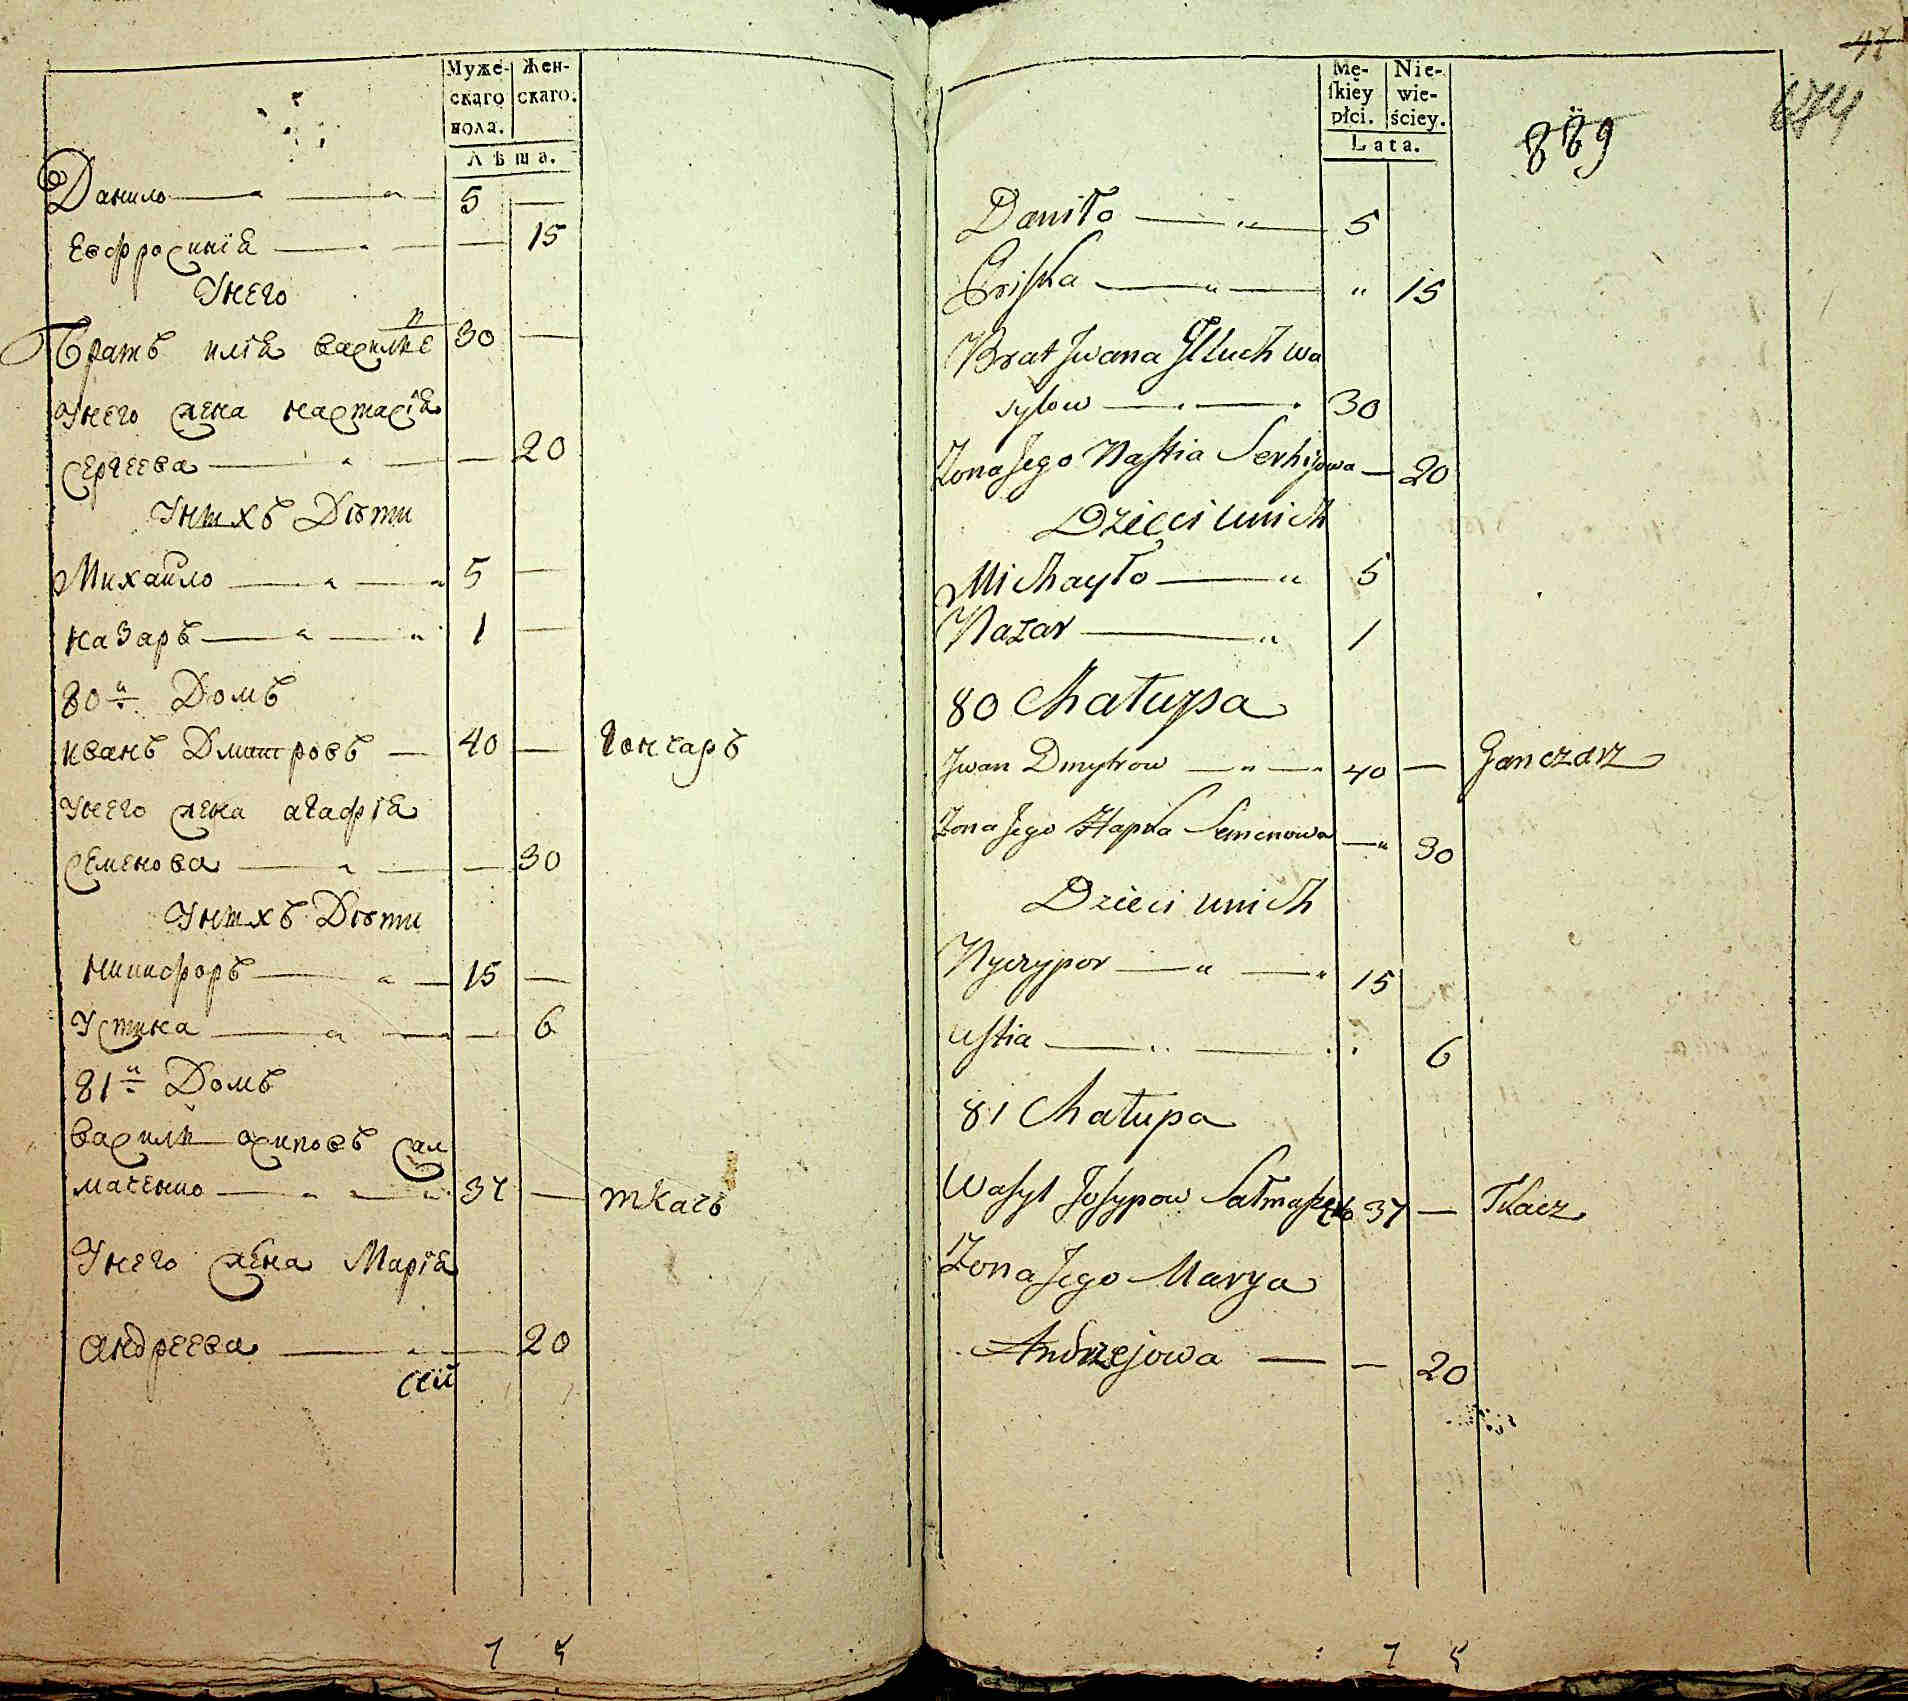 Муже-
скаго
пола.
Жен-
скаго.
Лѣта.
Данило 5
Евфросинїя 15
Унего
Братъ илїя василиевъ 30
Унего жена настасїя
Сергеева 20
Унихъ Дѣти
Михайло 5
назаръ 1
80й Домъ
иванъ Дмитровъ 40 гончаръ
Унего жена агафїя
Семенова 30
Унихъ Дѣти
никифоръ 15
Устина 6
81й Домъ
василй осиповъ сал
маченко 37 ткачь
Унего жена Марїя
андреева 20
7 5
Mę-
ſkiey
płci.
Nie-
wie-
ściey.
Lata.
47
889
674
Daniło 5
15
Brat Jwana Wa
sylow 30
Zona Jego Naſtia Serhijowa 20
Dzieci unich
Michayło 5
Nazar 1
80 Chałupa
Jwan Dmytrow 40 Ganczarz
Zona Jego Hapka Semenowa 30
Dzieci unich
Nyczypor 15
Uſtia 6
81 Chałupa
Waſyl Joſypow 37 Tkacz
Zona Jego Marya
Andrzejowa 20
7 5